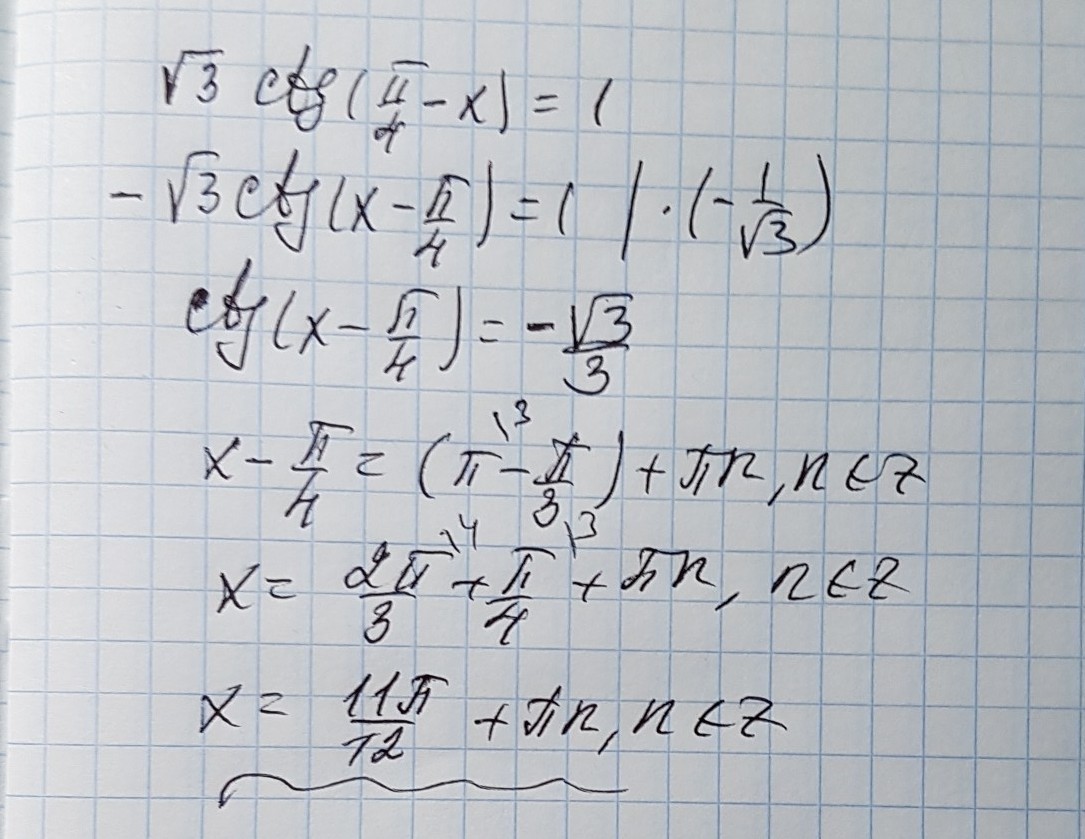 √3 ctg(π/4 - x) = 1
- √3 ctg(x - π/4) = 1 | · (- 1/√3)
ctg(x - π/4) = - √3/3
x - π/4 = (π\3 - π/3) + πn, n ∈ Z
x = 2π/3\4 + π/4\3 + πn, n ∈ Z
x = 11π/12 + πn, n ∈ Z